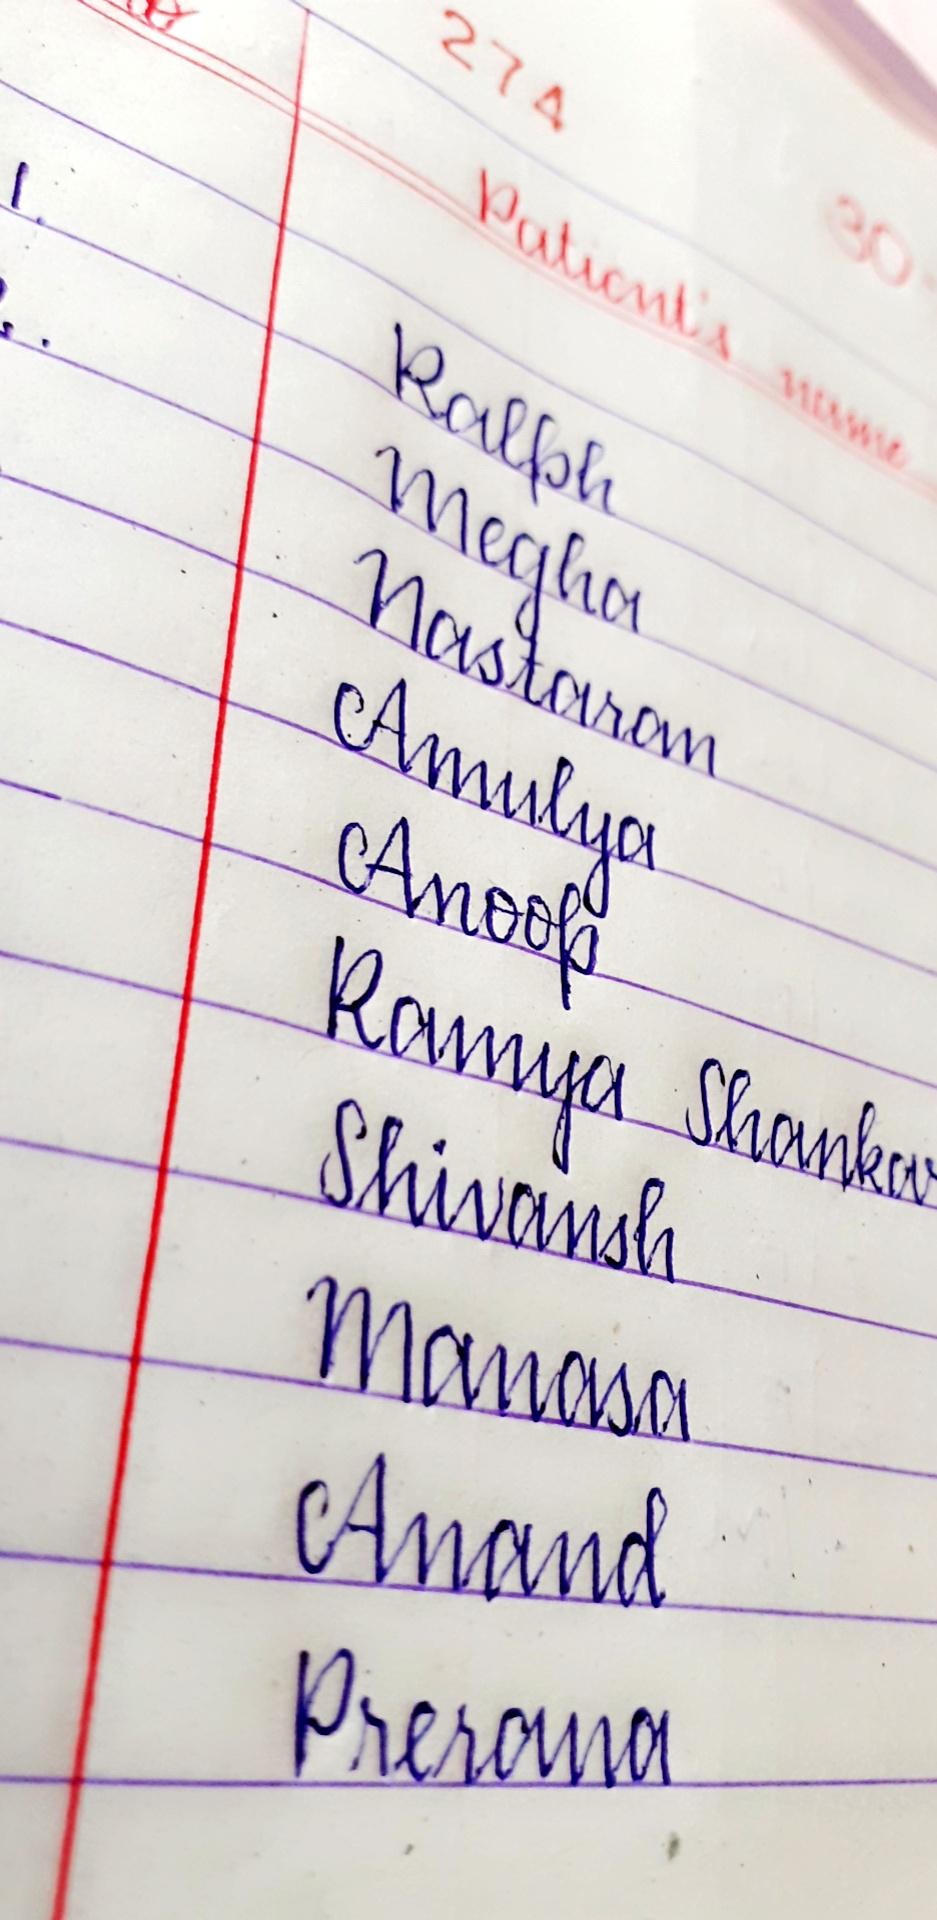 274
30
Patient's name
1.
Ralph
2.
Megha
Nastaran
Amulya
Anoop
Ramya Shankar
Shivansh
Manasa
Anand
Prerana